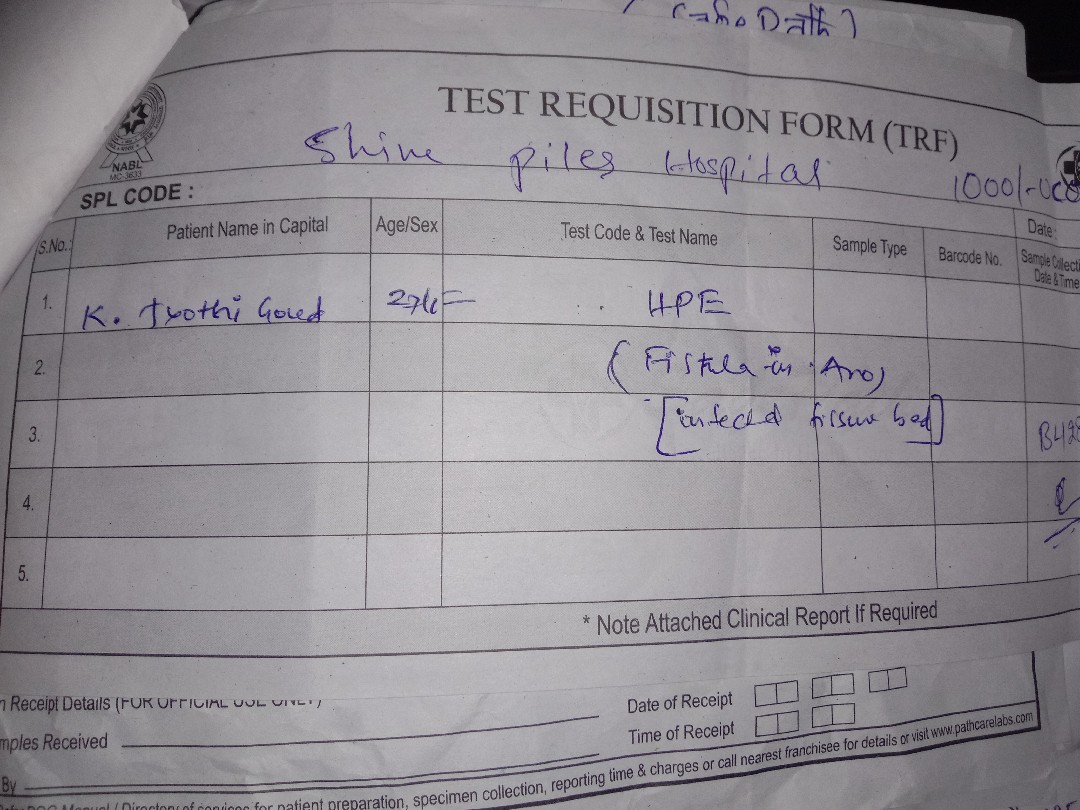 TEST REQUISITION FORM (TRF)
NABL
MC-3633
Shine piles Hospital
1000/-
SPL CODE :
Date:
S.No.: Patient Name in Capital Age/Sex Test Code & Test Name Sample Type Barcode No. Sample Collecti
Date & Time
1. K. Jyothi Goud HPE
2. (Fistula in Ano)
3. [infected fissure bed]
4.
5.
* Note Attached Clinical Report If Required
n Receipt Details (FOR OFFICIAL USE ONLY)
Date of Receipt
mples Received
Time of Receipt
By
for patient preparation, specimen collection, reporting time & charges or call nearest franchisee for details or visit www.pathcarelabs.com